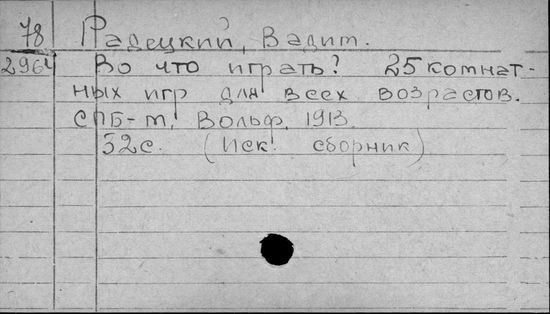 78 Радецкий, Вадим.
2964 Во что играть? 25 комнат-
ных игр для всех возрастов.
СПБ-м, Вольф, 1913.
52с. (Иск. сборник)